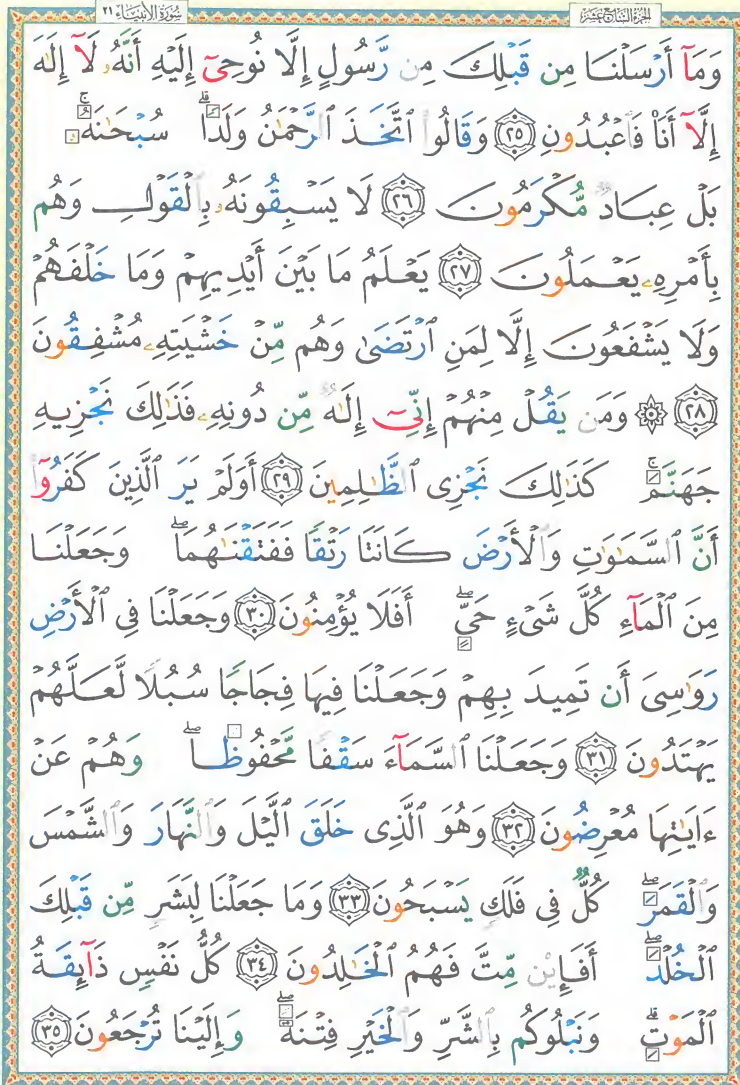 سُورَةُ الأَنبِيَاء ٢١
الجزء السابع عشر
وَمَآ أَرْسَلْنَا مِن قَبْلِكَ مِن رَّسُولٍ إِلَّا نُوحِىٓ إِلَيْهِ أَنَّهُۥ لَآ إِلَٰهَ
إِلَّآ أَنَا۠ فَٱعْبُدُونِ ﴿٢٥﴾ وَقَالُوا۟ ٱتَّخَذَ ٱلرَّحْمَٰنُ وَلَدًا ۗ سُبْحَٰنَهُۥ ۚ
بَلْ عِبَادٌ مُّكْرَمُونَ ﴿٢٦﴾ لَا يَسْبِقُونَهُۥ بِٱلْقَوْلِ وَهُم
بِأَمْرِهِۦ يَعْمَلُونَ ﴿٢٧﴾ يَعْلَمُ مَا بَيْنَ أَيْدِيهِمْ وَمَا خَلْفَهُمْ
وَلَا يَشْفَعُونَ إِلَّا لِمَنِ ٱرْتَضَىٰ وَهُم مِّنْ خَشْيَتِهِۦ مُشْفِقُونَ
﴿٢٨﴾ ۞ وَمَن يَقُلْ مِنْهُمْ إِنِّىٓ إِلَٰهٌ مِّن دُونِهِۦ فَذَٰلِكَ نَجْزِيهِ
جَهَنَّمَ ۚ كَذَٰلِكَ نَجْزِى ٱلظَّٰلِمِينَ ﴿٢٩﴾ أَوَلَمْ يَرَ ٱلَّذِينَ كَفَرُوٓا۟
أَنَّ ٱلسَّمَٰوَٰتِ وَٱلْأَرْضَ كَانَتَا رَتْقًا فَفَتَقْنَٰهُمَا ۖ وَجَعَلْنَا
مِنَ ٱلْمَآءِ كُلَّ شَىْءٍ حَىٍّ ۖ أَفَلَا يُؤْمِنُونَ ﴿٣٠﴾ وَجَعَلْنَا فِى ٱلْأَرْضِ
رَوَٰسِىَ أَن تَمِيدَ بِهِمْ وَجَعَلْنَا فِيهَا فِجَاجًا سُبُلًا لَّعَلَّهُمْ
يَهْتَدُونَ ﴿٣١﴾ وَجَعَلْنَا ٱلسَّمَآءَ سَقْفًا مَّحْفُوظًا ۖ وَهُمْ عَنْ
ءَايَٰتِهَا مُعْرِضُونَ ﴿٣٢﴾ وَهُوَ ٱلَّذِى خَلَقَ ٱلَّيْلَ وَٱلنَّهَارَ وَٱلشَّمْسَ
وَٱلْقَمَرَ ۖ كُلٌّ فِى فَلَكٍ يَسْبَحُونَ ﴿٣٣﴾ وَمَا جَعَلْنَا لِبَشَرٍ مِّن قَبْلِكَ
ٱلْخُلْدَ ۖ أَفَإِي۟ن مِّتَّ فَهُمُ ٱلْخَٰلِدُونَ ﴿٣٤﴾ كُلُّ نَفْسٍ ذَآئِقَةُ
ٱلْمَوْتِ ۗ وَنَبْلُوكُم بِٱلشَّرِّ وَٱلْخَيْرِ فِتْنَةً ۖ وَإِلَيْنَا تُرْجَعُونَ ﴿٣٥﴾